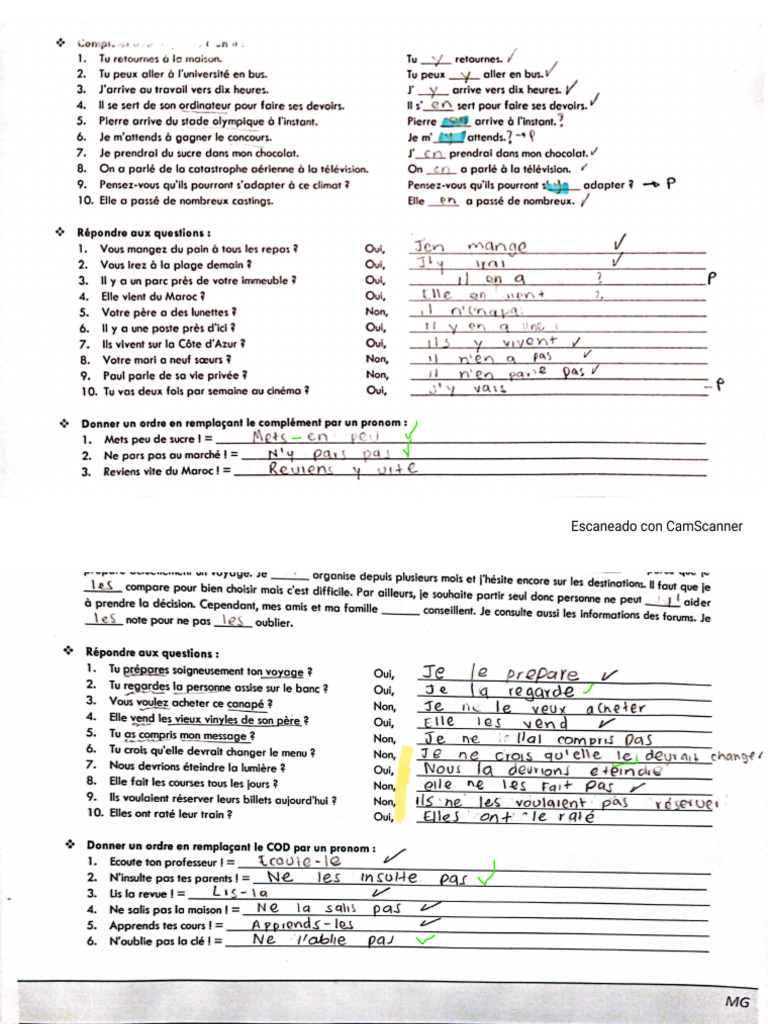 1. Tu retournes à la maison. Tu y retournes.
2. Tu peux aller à l'université en bus. Tu peux y aller en bus.
3. J'arrive au travail vers dix heures. J' y arrive vers dix heures.
4. Il se sert de son ordinateur pour faire ses devoirs. Il s' en sert pour faire ses devoirs.
5. Pierre arrive du stade olympique à l'instant. Pierre en arrive à l'instant. ?
6. Je m'attends à gagner le concours. Je m' y attends. ? → P
7. Je prendrai du sucre dans mon chocolat. J' en prendrai dans mon chocolat.
8. On a parlé de la catastrophe aérienne à la télévision. On en a parlé à la télévision.
9. Pensez-vous qu'ils pourront s'adapter à ce climat ? Pensez-vous qu'ils pourront adapter ? → P
10. Elle a passé de nombreux castings. Elle en a passé de nombreux.
❖ Répondre aux questions :
1. Vous mangez du pain à tous les repas ? Oui, J'en mange
2. Vous irez à la plage demain ? Oui, J'y irai
3. Il y a un parc près de votre immeuble ? Oui, il en a ? P
4. Elle vient du Maroc ? Oui, Elle en vient ?
5. Votre père a des lunettes ? Non, il n'en a pas
6. Il y a une poste près d'ici ? Oui, il y en a une
7. Ils vivent sur la Côte d'Azur ? Oui, ils y vivent
8. Votre mari a neuf sœurs ? Non, il n'en a pas
9. Paul parle de sa vie privée ? Non, il n'en parle pas
10. Tu vas deux fois par semaine au cinéma ? Oui, J'y vais P
❖ Donner un ordre en remplaçant le complément par un pronom :
1. Mets peu de sucre ! = Mets-en peu
2. Ne pars pas au marché ! = N'y pars pas
3. Reviens vite du Maroc ! = Reviens y vite
Escaneado con CamScanner
un voyage. Je organise depuis plusieurs mois et j'hésite encore sur les destinations. Il faut que je
les compare pour bien choisir mais c'est difficile. Par ailleurs, je souhaite partir seul donc personne ne peut aider
à prendre la décision. Cependant, mes amis et ma famille conseillent. Je consulte aussi les informations des forums. Je
les note pour ne pas les oublier.
❖ Répondre aux questions :
1. Tu prépares soigneusement ton voyage ? Oui, Je le prepare
2. Tu regardes la personne assise sur le banc ? Oui, Je la regarde
3. Vous voulez acheter ce canapé ? Non, Je ne le veux acheter
4. Elle vend les vieux vinyles de son père ? Oui, Elle les vend
5. Tu as compris mon message ? Non, Je ne l'ai compris pas
6. Tu crois qu'elle devrait changer le menu ? Non, Je ne crois qu'elle le devrait changer
7. Nous devrions éteindre la lumière ? Oui, Nous la devrions eteindre
8. Elle fait les courses tous les jours ? Non, elle ne les fait pas
9. Ils voulaient réserver leurs billets aujourd'hui ? Non, ils ne les voulaient pas réserver
10. Elles ont raté leur train ? Oui, Elles ont le raté
❖ Donner un ordre en remplaçant le COD par un pronom :
1. Ecoute ton professeur ! = Ecoute-le
2. N'insulte pas tes parents ! = Ne les insulte pas
3. Lis la revue ! = Lis-la
4. Ne salis pas la maison ! = Ne la salis pas
5. Apprends tes cours ! = Apprends-les
6. N'oublie pas la clé ! = Ne l'ablie pas
MG